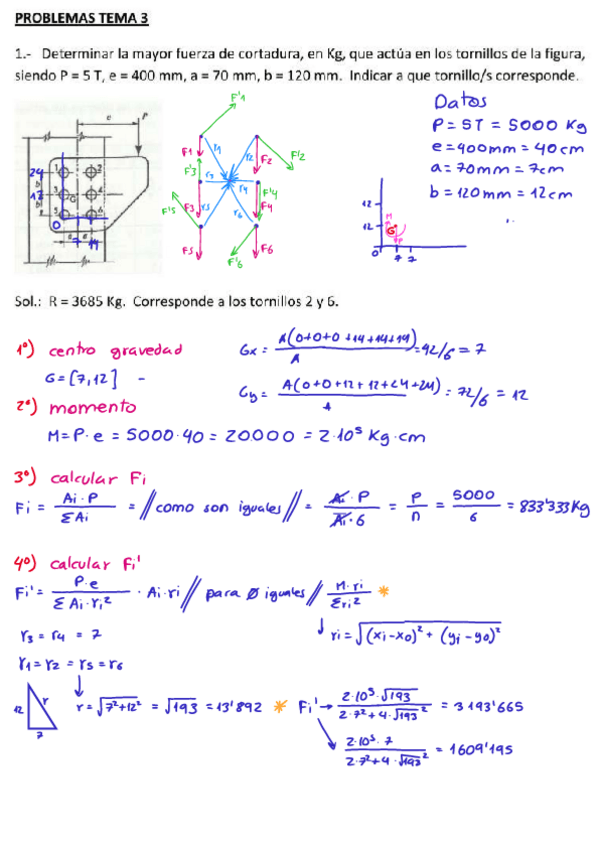 PROBLEMAS TEMA 3
1.- Determinar la mayor fuerza de cortadura, en Kg, que actúa en los tornillos de la figura,
siendo P = 5 T, e = 400 mm, a = 70 mm, b = 120 mm. Indicar a que tornillo/s corresponde.
Datos
P = 5T = 5000 Kg
e = 400mm = 40cm
a = 70mm = 7cm
b = 120mm = 12cm
e P
24
12
0
7 14
F'1
F1 r1 r2 F2 F'2
F'3 r3 r4 F'4
F'5 F3 r5 r6 F4
F5 F'6 F6
12
12
M
G
P
0 7 7
Sol.: R = 3685 Kg. Corresponde a los tornillos 2 y 6.
1º) centro gravedad
G = [7,12] -
Gx = A(0+0+0+14+14+14) / A = 42/6 = 7
Gy = A(0+0+12+12+24+24) / A = 72/6 = 12
2º) momento
M = P·e = 5000·40 = 20000 = 2·10⁵ Kg·cm
3º) calcular Fi
Fi = Ai·P / ΣAi = // como son iguales // = Ai·P / Ai·6 = P / n = 5000 / 6 = 833'333 Kg
4º) calcular Fi'
Fi' = P·e / ΣAi·ri² · Ai·ri // para Ø iguales // M·ri / Σri² *
r3 = r4 = 7
ri = √(xi-xo)² + (yi-yo)²
r1 = r2 = r5 = r6
12 r 7
r = √7²+12² = √193 = 13'892 * Fi' → 2·10⁵·√193 / 2·7²+4·√193² = 3193'665
2·10⁵·7 / 2·7²+4·√193² = 1609'195